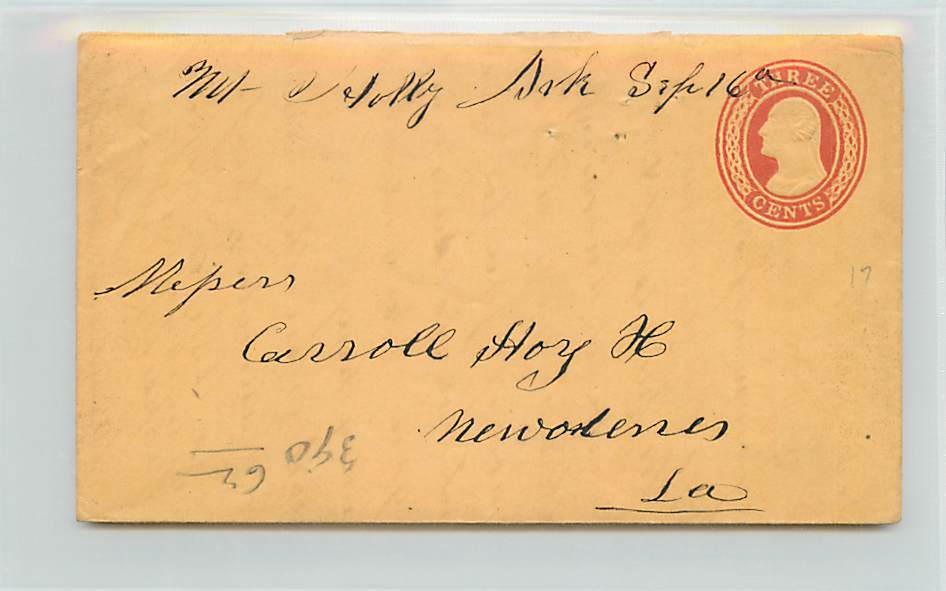 Mt Holly Ark Sep 16
THREE
CENTS
17
Messrs
Carroll Hoy & Co
Neworleans
La
390